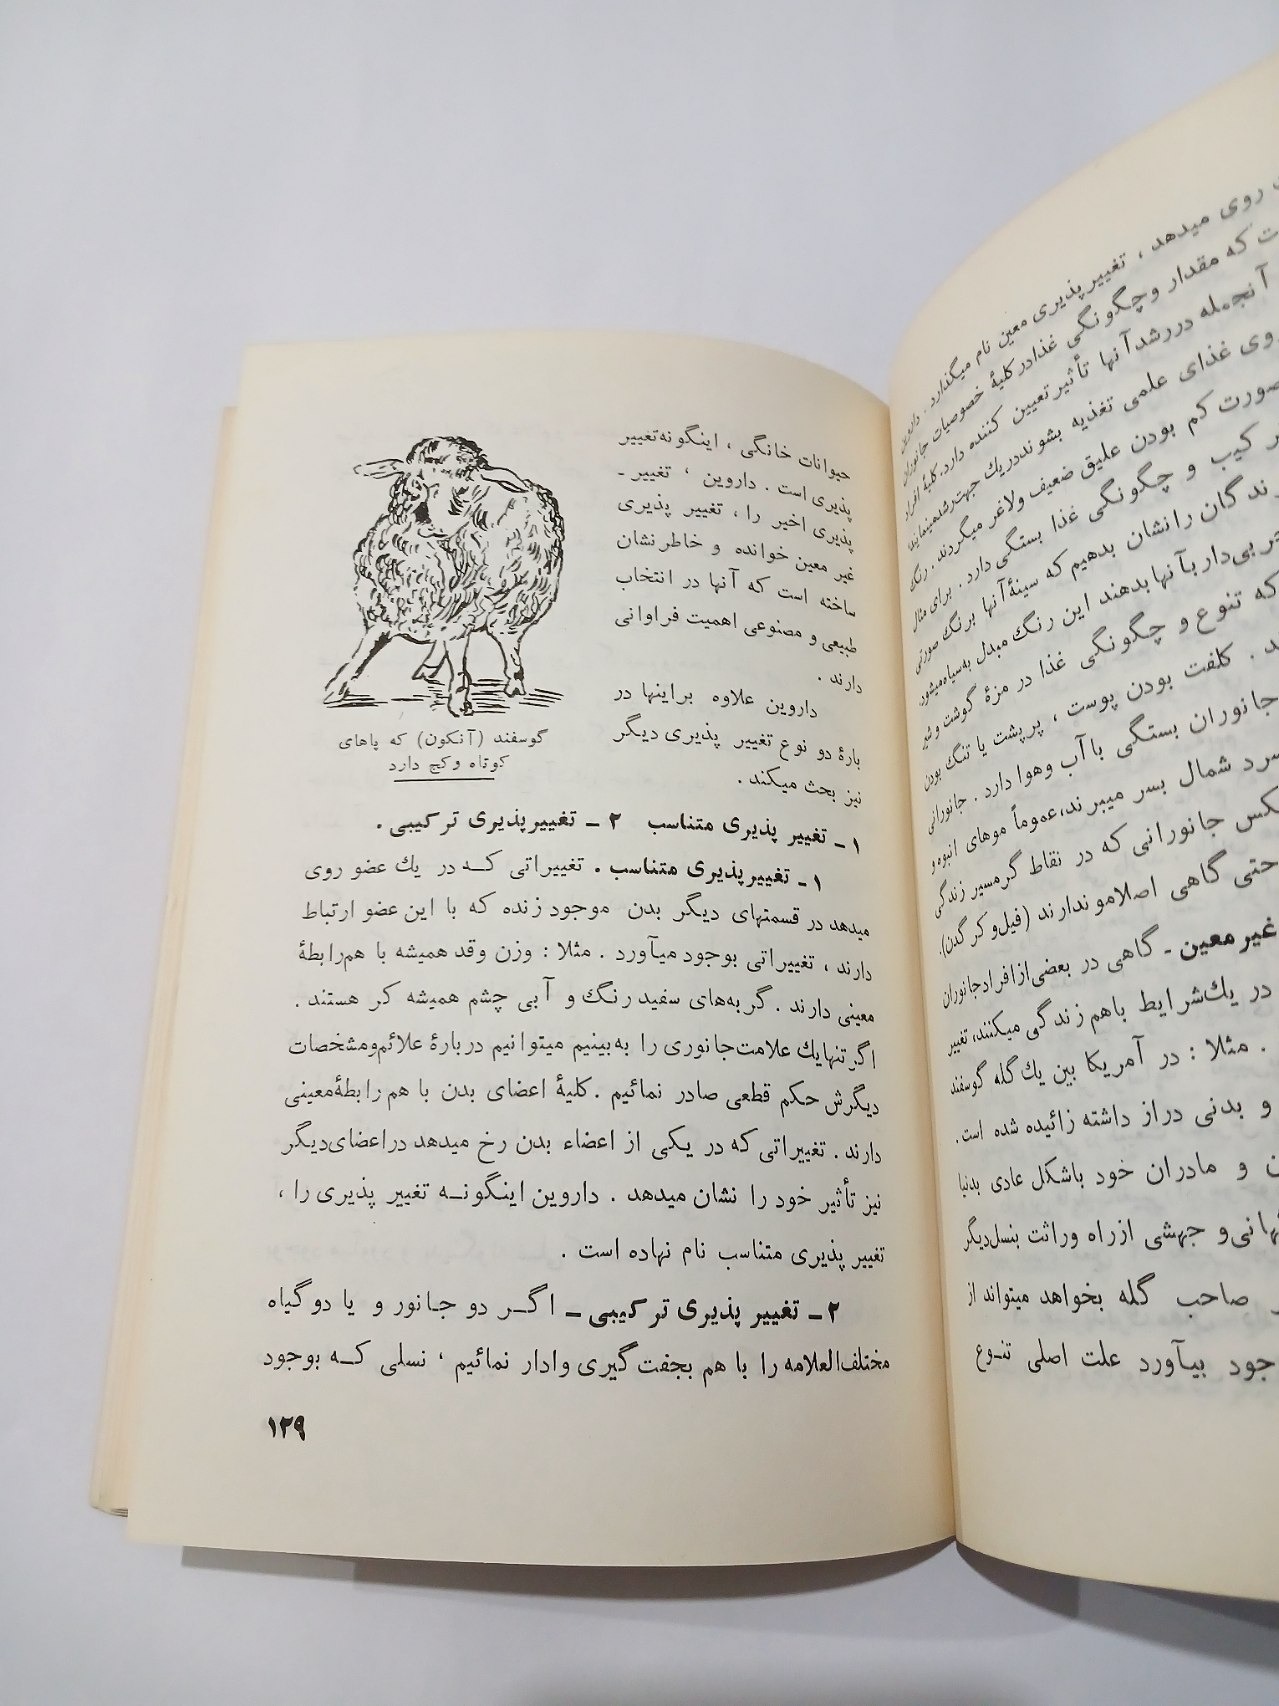 ی روی میدهد ، تغییرپذیری معین نام میگذارد . داروین
ت که مقدار وچگونگی غذادر کلیهٔ خصوصیات جانوران
آنجمله دررشدآنها تأثیر تعیین کننده دارد. کلیهٔ افراد
وی غذای علمی تغذیه بشوند دریك جهت رشدمینمایند
صورت کم بودن علیق ضعیف ولاغر میگردند . رنگ
ر کیب و چگونگی غذا بستگی دارد . برای مثال
ندگان رانشان بدهیم که سینهٔ آنها برنگ صورتی
چربی‌دار بآنها بدهند این رنگ مبدل به‌سیاه میشود.
که تنوع و چگونگی غذا در مزهٔ گوشت و شیر
د . کلفت بودن پوست ، پرپشت یا تنگ بودن
جانوران بستگی باآب وهوا دارد . جانورانی
سرد شمال بسر میبرند،عموماً موهای انبوه و
کس جانورانی که در نقاط گرمسیر زندگی
حتی گاهی اصلامو ندارند (فیل‌و کر گدن).
غیر معین - گاهی در بعضی‌ازافراد جانوران
در یك‌شرایط باهم زندگی میکنند، تغییر
. مثلا : در آمریکا بین یك گله گوسفند
و بدنی دراز داشته زائیده شده است.
ن و مادران خود باشکل عادی بدنیا
گهانی‌و جهشی ازراه وراثت بنسل‌دیگر
ر صاحب گله بخواهد میتواند از
جود بیآورد علت اصلی تنـوع
حیوانات خانگی ، اینگونه‌تغییر
پذیری است . داروین ، تغییر ـ
پذیری اخیر را ، تغییر پذیری
غیر معین خوانده و خاطرنشان
ساخته است که آنها در انتخاب
طبیعی و مصنوعی اهمیت فراوانی
دارند .
داروین علاوه براینها در
بارهٔ دو نوع تغییر پذیری دیگر
نیز بحث میکند .
گوسفند (آنکون) که پاهای
کوتاه وکج دارد
۱ ـ تغییر پذیری متناسب ۲ ـ تغییرپذیری ترکیبی .
۱ ـ تغییرپذیری متناسب . تغییراتی کـه در یك عضو روی
میدهد در قسمتهای دیگر بدن موجود زنده که با این عضو ارتباط
دارند ، تغییراتی بوجود میآورد . مثلا : وزن وقد همیشه با هم‌رابطهٔ
معینی دارند . گربه‌های سفید رنگ و آبی چشم همیشه کر هستند .
اگر تنهایك علامت‌جانوری را به‌بینیم میتوانیم دربارهٔ علائم‌ومشخصات
دیگرش حکم قطعی صادر نمائیم . کلیهٔ اعضای بدن با هم رابطهٔ‌معینی
دارند . تغییراتی که در یکی از اعضاء بدن رخ میدهد دراعضای‌دیگر
نیز تأثیر خود را نشان میدهد . داروین اینگونـه تغییر پذیری را ،
تغییر پذیری متناسب نام نهاده است .
۲ـ تغییر پذیری ترکیبی ـ اگـر دو جـانور و یا دو گیاه
مختلف‌العلامه را با هم بجفت گیری وادار نمائیم ، نسلی کـه بوجود
۱۲۹